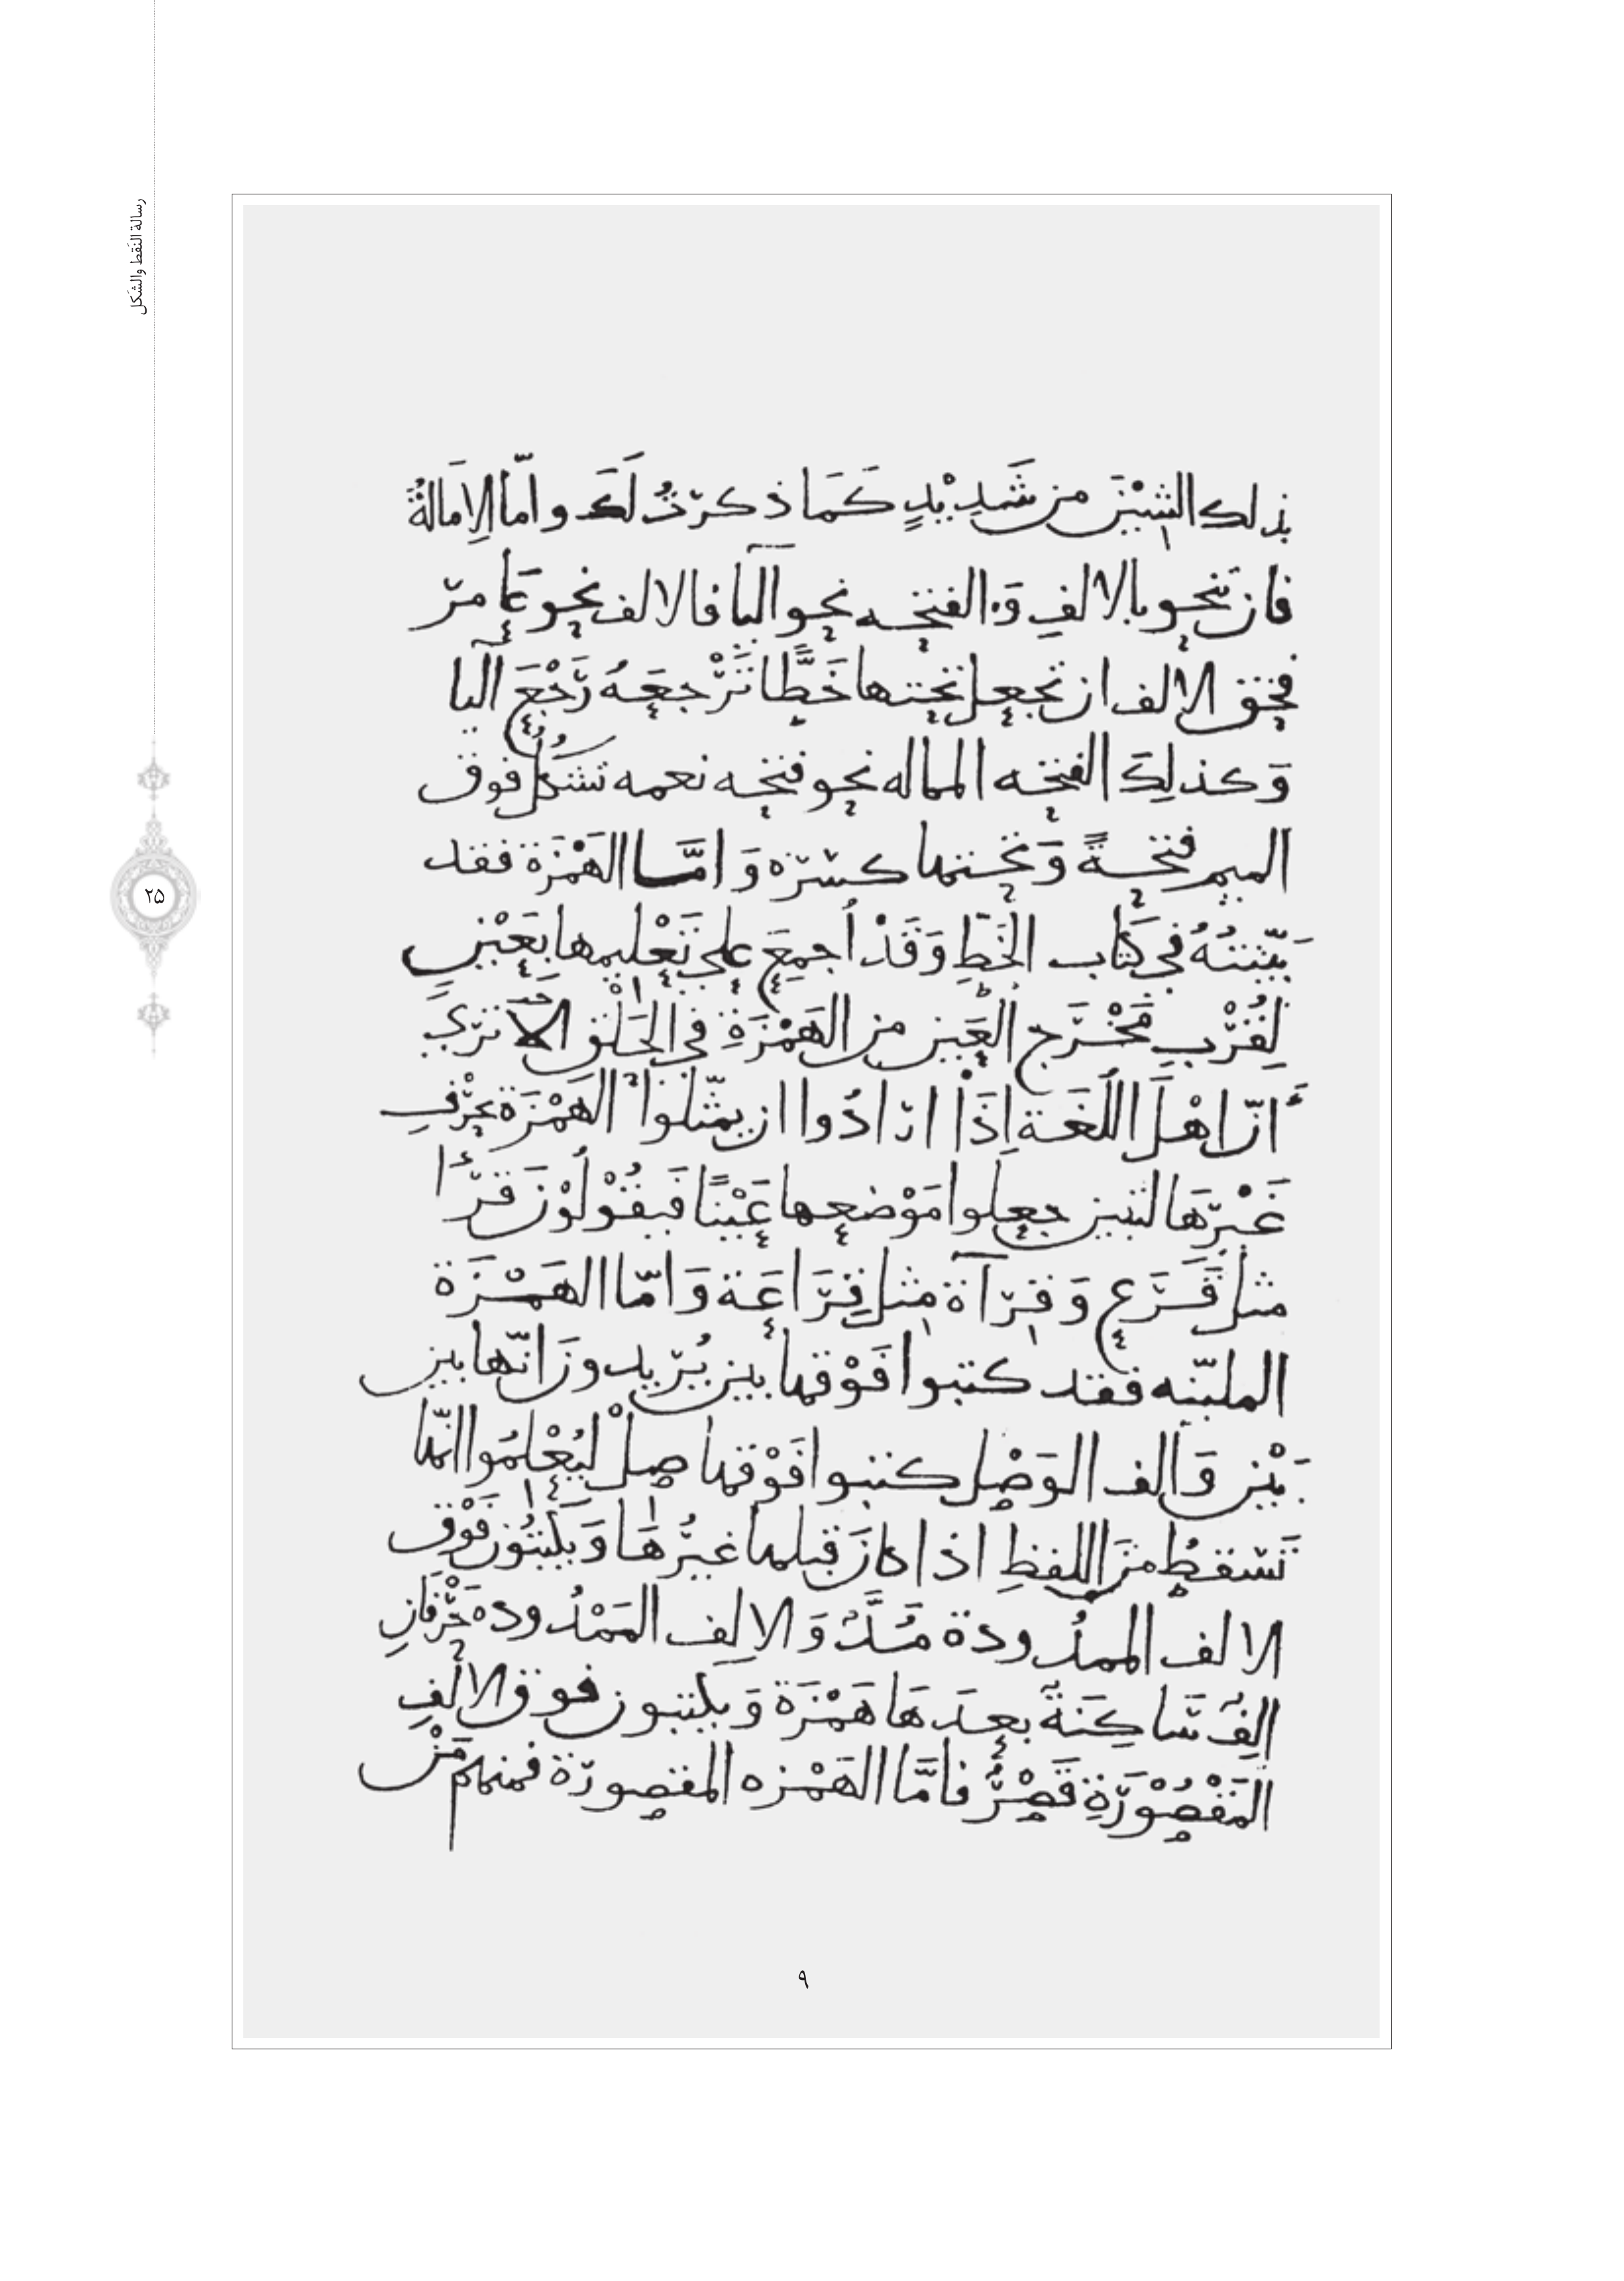 رسالة النَّقط والشَّكل
بذلك الشِيْنَ من شَدِيْدٍ كَمَا ذكرْتُ لَكَ واَمّا الإِمَالَةُ
فان تنحو بالالفِ وَالفتحه نحو اليا فالالف نحو عَامر
فحق الالف ان تجعل تحتها خَطًّا تَرْجعَهُ رَجْعَ اليا
وَكذلِكَ الفتحه المماله نحو فتحه نعمه تشكُل فوق
الميم فتحةً وَتحتها كسْرَه وَامَّا الهَمْزَة فقد
بَيّنتُهُ في كِتَاب الخَطِ وَقَدْ اُجمِعَ على تَعْليمها بِعَيْنٍ
لِقُرْبِ مَخْرَجِ العَيِن من الهَمْزَةِ في الحَلْقِ الاَ تَرَى
اَنّ اهْلَ اللُغَة اِذَا ارَادُوا ان يمثّلوا الهَمْزَة بحَرْفِ
غَيْرهَا لتبين جعلوا مَوْضعها عَيْنًا فَيقُوْلُوْنَ قَرَأَ
مثل قَرَعَ وَقِرآة مِثل قِرَاعَة وَامّا الهَمْزَة
الملينّه فقد كتبوا فَوْقها بين يُرَيدونَ انّها بين
بَيْن وَالف الوَصْل كتبوا فَوْقها صِلْ ليُعْلِمُوا انّها
تَسْقطُ مِنَ اللفظِ اذا كانَ قبلها غيرُهَا وَيكْتبُونَ فَوْق
الالف الممدُودة مَدَّ وَالالِف المَمْدُوده حَرْفانِ
اَلِفُ سَاكِنَةٌ بعدَهَا هَمْزَة وَيكتبون فوق الالَفِ
المَقْصُوْرَةِ قَصْرُ فامَّا الهَمْزه المقصورَة فمنهم مَنْ
٩
٢٥